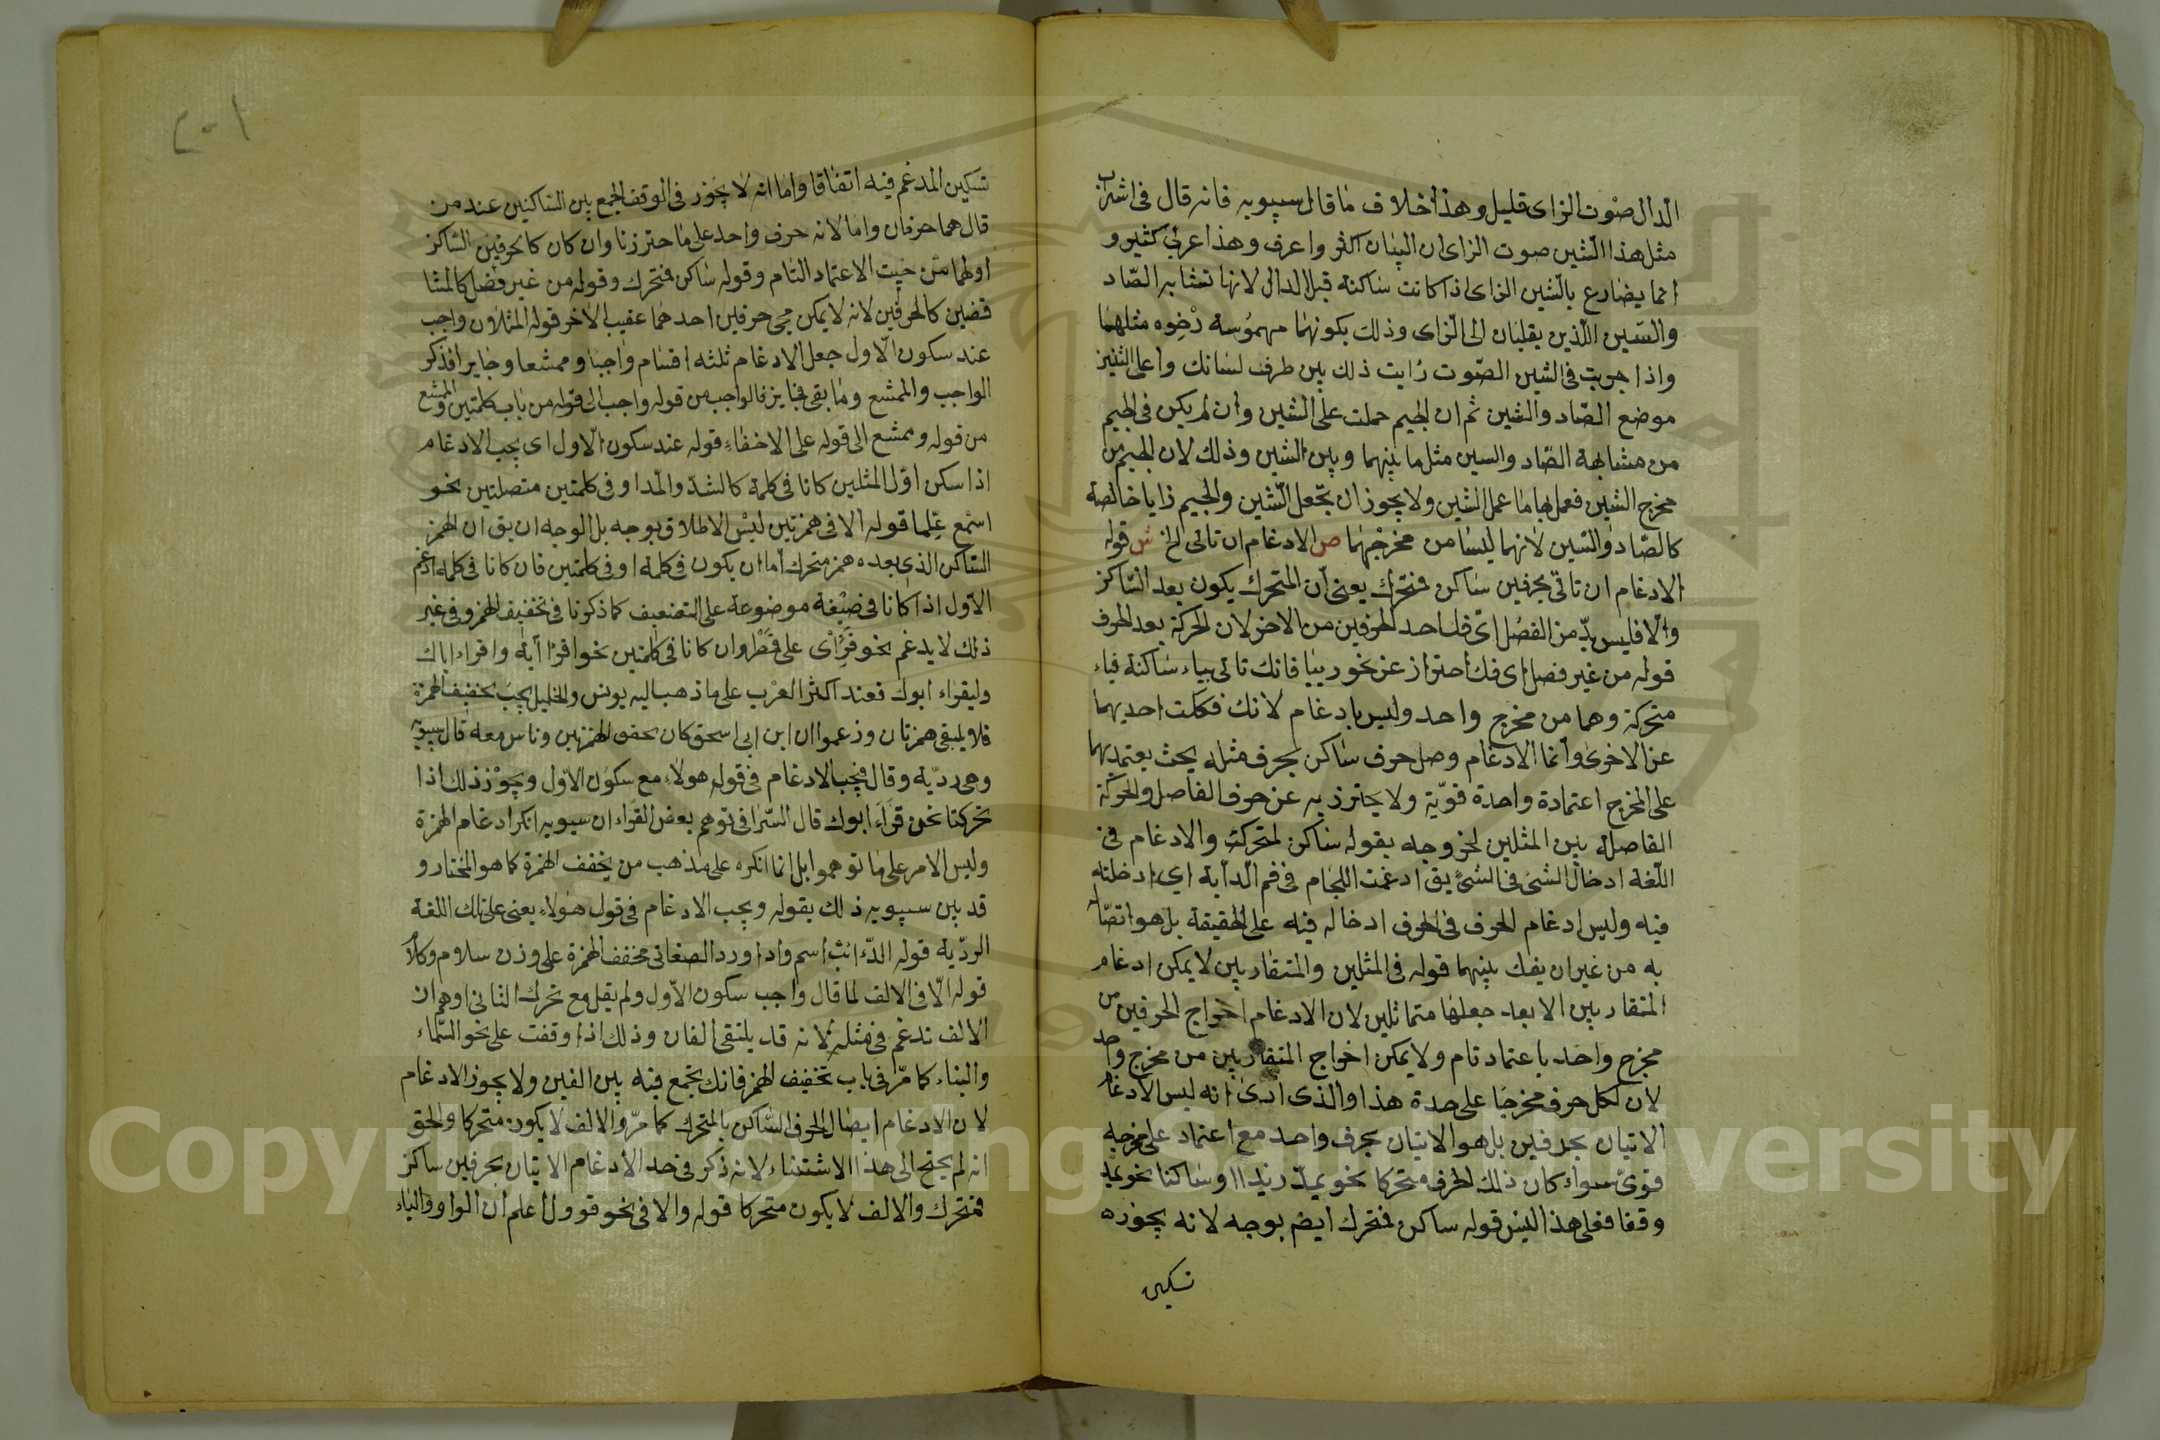 الدال صوت الزاى قليل وهذا خلاف ما قال سيبويه فانه قال فى اشراب
مثل هذا الشين صوت الزاى ان البيان اكثر واعرف وهذا عربى كثير و
انما يضارع بالشين الزاى اذا كانت ساكنة قبل الدال لانها تشابه الصاد
والسين اللذين يقلبان الى الزاى وذلك بكونهما مهموسة رخوه مثلهما
واذا جريت فى الشين الصوت رايت ذلك بين طرف لسانك واعلى الثنيتين
موضع الصاد والشين ثم ان الجيم حملت على الشين وان لم يكن فى الجيم
من مشابهة الصاد والسين مثل ما بينهما وبين الشين وذلك لان الجيم من
مخرج الشين فعمل بها ما عمل الشين ولا يجوز ان تجعل الشين والجيم زايا خالصة
كالصاد والسين لانهما ليسا من مخرجهما ص الادغام ان تاتى الخ ش قوله
الادغام ان تاتى بحرفين ساكن فمتحرك يعنى ان المتحرك يكون بعد الساكن
والا فليس بد من الفصل اى فك احد الحرفين من الاخر لان الحركة بعد الحرف
قوله من غير فصل اى فك احتراز عن نحو رييا فانك تاتى بياء ساكنة فياء
متحركة وهما من مخرج واحد وليس بادغام لانك فككت احديهما
عن الاخرى وانما الادغام وصل حرف ساكن بحرف مثله بحث يعتمد بهما
على المخرج اعتمادة واحدة قوية ولا يحترز به عن حرف الفاصل والحركة
الفاصلة بين المثلين لخروجه بقوله ساكن لمتحرك والادغام فى
اللغة ادخال الشئ فى الشئ يق ادغمت اللجام فى فم الدابة اى ادخلته
فيه وليس ادغام الحرف فى الحرف ادخاله فيه على الحقيقة بل هو اتصاله
به من غير ان يفك بينهما قوله فى المثلين والمتقاربين لا يمكن ادغام
المتقاربين الا بعد جعلهما متماثلين لان الادغام اخراج الحرفين من
مخرج واحد باعتماد تام ولا يمكن اخراج المتقاربين من مخرج واحد
لان لكل حرف مخرجا على حدة هذا والذى ارى انه ليس الادغام
الاتيان بحرفين بل هو الاتيان بحرف واحد مع اعتماد على مخرجه
قوى سواء كان ذلك الحرف متحركا نحو يمد زيدا او ساكنا نحو يمد
وقفا فعلى هذا ليس قوله ساكن فمتحرك ايض بوجه لانه يجوزه
تسكين
٢٠١
تسكين المدغم فيه اتفاقا واما انه لا يجوز فى الوقف الجمع بين الساكنين عند من
قال هما حرفان واما لانه حرف واحد على ما حترزنا وان كان كالحرفين الساكن
اولهما من حيث الاعتماد التام وقوله ساكن فمتحرك وقوله من غير فصل كالمتنا
قضين كالحرفين لانه لا يمكن مجى حرفين احدهما عقيب الاخر قوله المثلان واجب
عند سكون الاول جعل الادغام ثلثه اقسام واجبا وممتنعا وجايزا فذكر
الواجب والممتنع وما بقى فجايز فالواجب من قوله واجب الى قوله من باب كلمتين والممتنع
من قوله وممتنع الى قوله على الاخفاء قوله عند سكون الاول اى يجب الادغام
اذا سكن اول المثلين كانا فى كلمة كالشد والمد او فى كلمتين متصلتين نحو
اسمع علما قوله الا فى همزتين ليس الاطلاق بوجه بل الوجه ان يق ان الهمز
الساكن الذى بعده همز متحرك اما ان يكون فى كلمة او فى كلمتين فان كانا فى كلمة ادغم
الاول اذا كانا فى صيغة موضوعة على التضعيف كما ذكرنا فى تخفيف الهمز وفى غير
ذلك لا يدغم نحو قرأى على قمطر وان كانا فى كلمتين نحو اقرا آية واقراء اباك
وليقراء ابوك فعند اكثر العرب على ما ذهب اليه يونس والخليل يجب تخفيف الهمزة
فلا يلتقى همزتان وزعموا ان ابن ابى اسحق كان يحقق الهمزتين وناس معه قال سيبويه
وهى ردية وقال فيجب الادغام فى قوله هولاء مع سكون الاول ويجوز ذلك اذا
تحركتا نحو قرا ابوك قال السيرافى توهم بعض القراء ان سيبويه انكر ادغام الهمزة
وليس الامر على ما توهموا بل انما انكره على مذهب من يخفف الهمزة كما هو المختار و
قد بين سيبويه ذلك بقوله ويجب الادغام فى قول هولاء يعنى على تلك اللغة
الردية قوله الدءاث اسم واد اورد الصغانى مخفف الهمزة على وزن سلام وكلام
قوله الا فى الالف لما قال واجب سكون الاول ولم يقل مع تحرك الثانى اوهم ان
الالف تدغم فى مثله لانه قد يلتقى الفان وذلك اذا وقفت على نحو السماء
والبناء كما مر فى باب تخفيف الهمز فانك تجمع فيه بين الفين ولا يجوز الادغام
لان الادغام ايصال الحرف الساكن بالمتحرك كما مر والالف لا يكون متحركا والحق
انه لم يحتج الى هذا الاستثناء لانه ذكر فى حد الادغام الاتيان بحرفين ساكن
فمتحرك والالف لا يكون متحركا قوله والا فى نحو قوول اعلم ان الواو والياء
Copyright © King Saud University